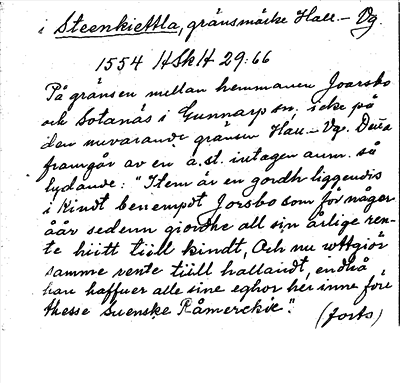 i Steenkiettla, gränsmärke Hall.– Vg.
1554 HSkH 29:66
På gränsen mellan hemmanen Joarsbo
och Sotanäs i Gunnarp sn. icke på
den nuvarande gränsen Hall.– Vg. Detta
framgår av en a. st. intagen anm. så
lydande: "Item är en gordh liggendis
i Kindt benempdt Jorsbo som för någer
åår sedenn giordhe all sin årlige ren-
te hiitt tiill kindt, Och nu wttgiör
samme rente tiill hallandt, endhå
han haffuer alle sine eghor här inne före
thesse Suenske Råmerckie".
(forts)